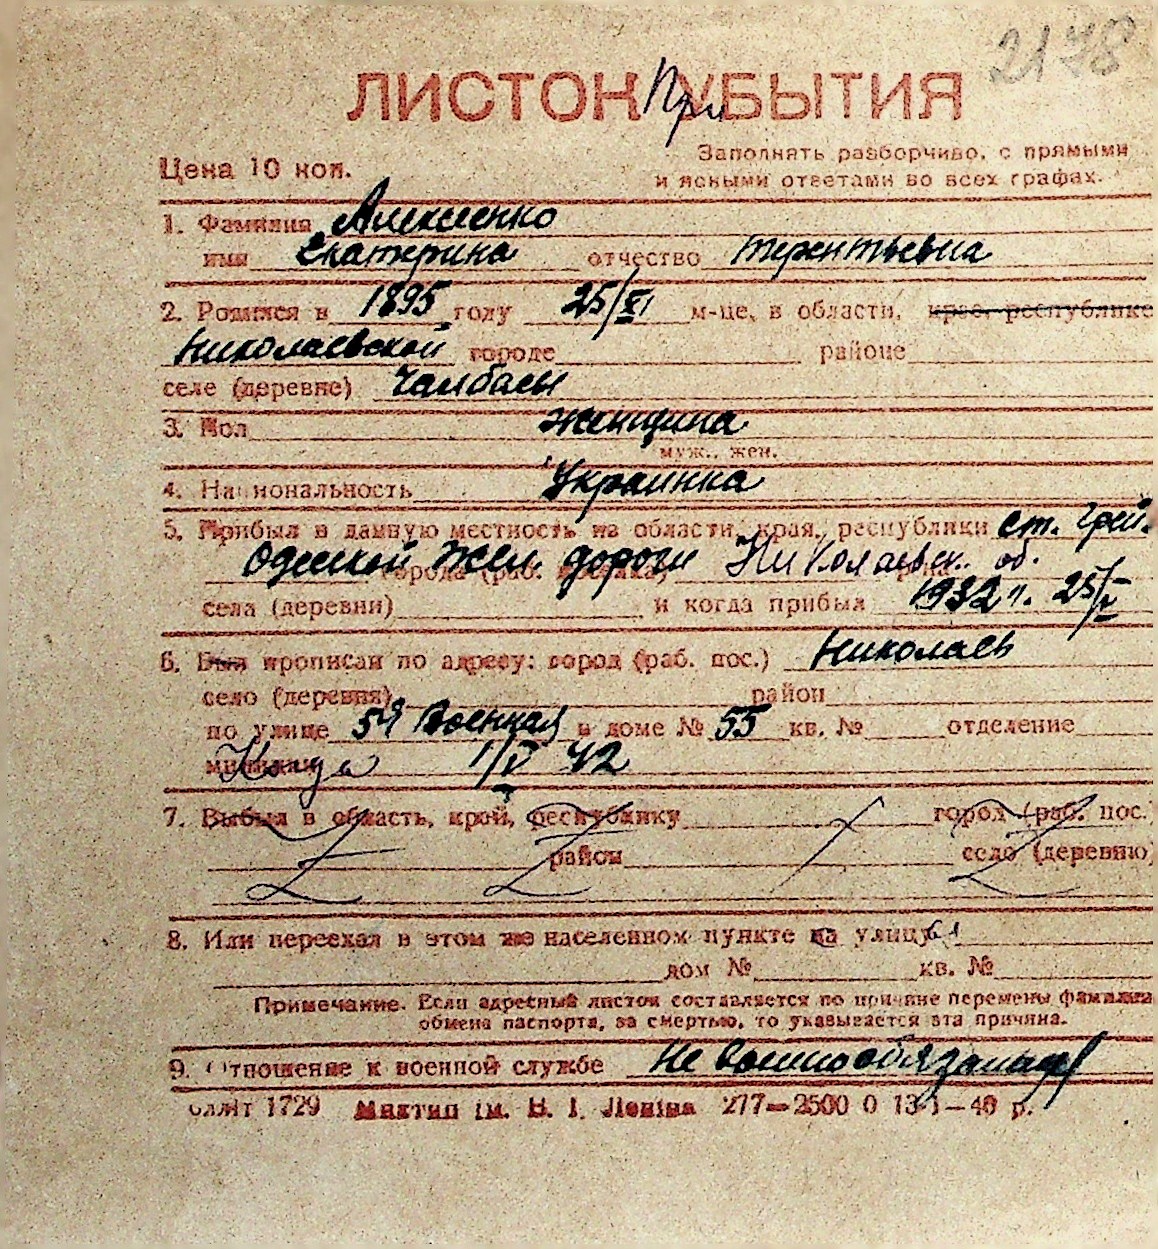 2178
ЛИСТОК При УБЫТИЯ
Цена 10 коп.
Заполнять разборчиво, с прямыми
и ясными ответами во всех графах.
1. Фамилия Алексеенко
имя Екатерина отчество Терентьевна
2. Родился в 1895 году 25/XI м-це, в области, крае, республике
Николаевской городе районе
селе (деревне)
3. Пол женщина
муж., жен.
4. Национальность Украинка
5. Прибыл в данную местность из области, края, республики ст. Грей.
Одесской жел. дороги Николаевск. об.
города (раб. поселка)
села (деревни) и когда прибыл 1932 г. 25/V
6. Был прописан по адресу: город (раб. пос.) Николаев
село (деревня) район
по улице 5я Военная в доме № 55 кв. № отделение
милиции Когда 1/V 42
7. Выбыл в область, край, республику город (раб. пос.)
район село (деревню)
8. Или переехал в этом же населенном пункте на улицу
дом № кв. №
Примечание. Если адресный листок составляется по причине перемены фамилии
обмена паспорта, за смертью, то указывается эта причина.
9. Отношение к военной службе Не военнообязаная
1729 ім. В. І. Леніна 277—2500 0 13-I—40 р.